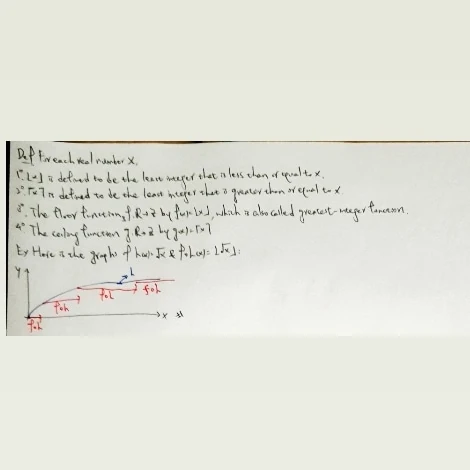 Def For each real number x,
1° ⌊x⌋ is defined to be the least integer that is less than or equal to x.
2° ⌈x⌉ is defined to be the least integer that is greater than or equal to x
3° The floor function f: R→Z by f(x)=⌊x⌋, which is also called greatest-integer function.
4° The ceiling function g: R→Z by g(x)=⌈x⌉
Ex Here is the graph of h(x)=√x & f∘h(x)=⌊√x⌋:
y
h
f∘h
f∘h
f∘h
f∘h
x